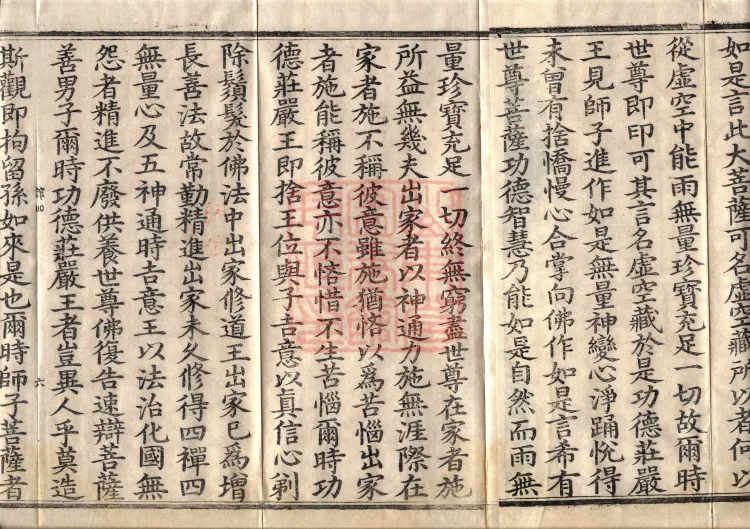 如是言此大菩薩可名虛空藏所以者何以
從虛空中能雨無量珍寶充足一切故爾時
世尊即印可其言名虛空藏於是功德莊嚴
王見師子進作如是無量神變心淨踊悅得
未曾有捨憍慢心合掌向佛作如是言希有
世尊菩薩功德智慧乃能如是自然而雨無
量珍寶充足一切終無窮盡世尊在家者施
所益無幾夫出家者以神通力施無涯際在
家者施不稱彼意雖施猶悋以爲苦惱出家
者施能稱彼意亦不悋惜不生苦惱爾時功
德莊嚴王即捨王位與子吉意以真信心剃
除鬚髮於佛法中出家修道王出家已爲增
長善法故常勤精進出家未久修得四禪四
無量心及五神通時吉意王以法治化國無
怨者精進不廢供養世尊佛復告速辯菩薩
善男子爾時功德莊嚴王者豈異人乎莫造
斯觀即拘留孫如來是也爾時師子菩薩者
六